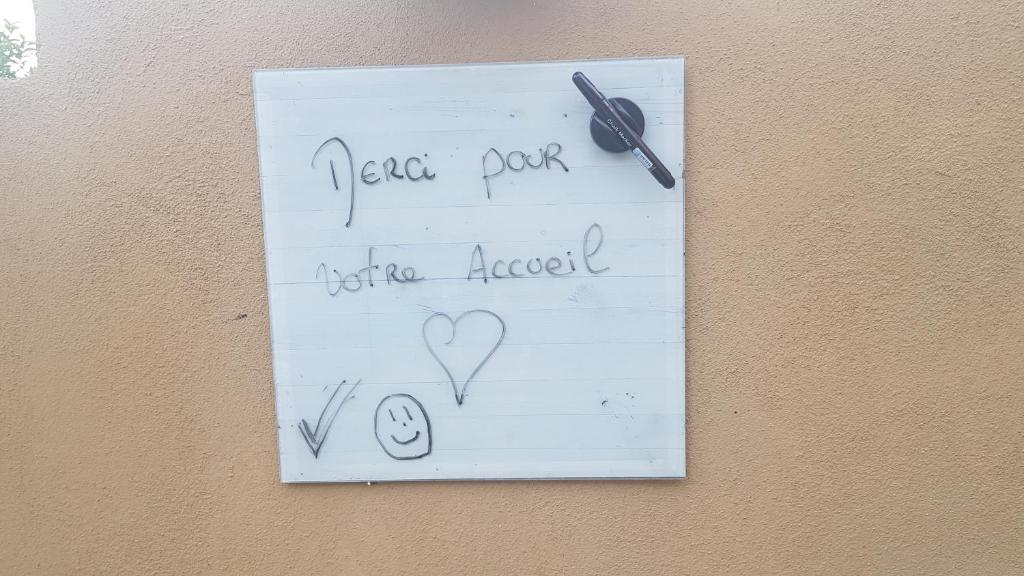 Merci pour
votre Accueil